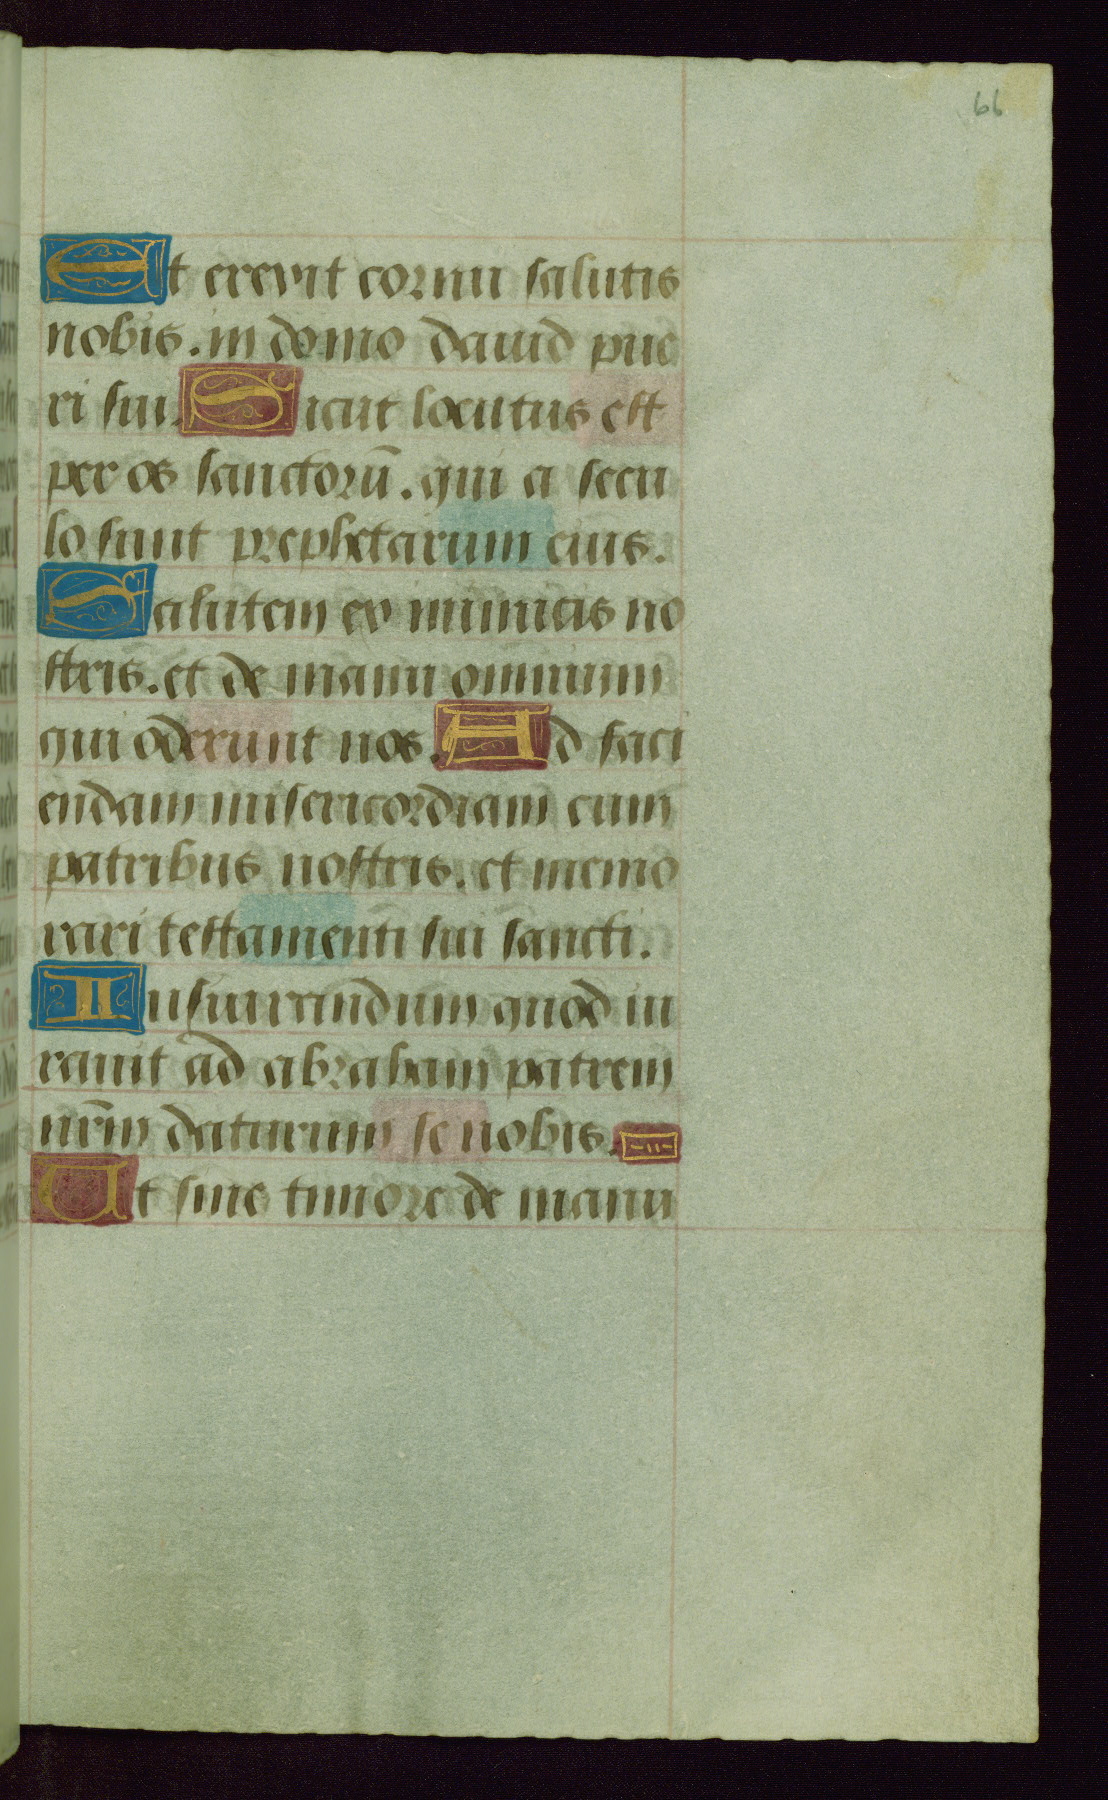 66
Et erexit cornu salutis
nobis. in domo dauid pue
ri sui. Sicut locutus est
per os sanctorū. qui a secu
lo sunt prophetarum eius.
Salutem ex inimicis no
stris. et de manu omnium
qui oderunt nos. Ad faci
endam misericordiam cum
patribus nostris. et memo
rari testamenti sui sancti.
Iusiurandum quod iu
rauit ad abraham patrem
nr̄m daturum se nobis.
Ut sine timore de manu